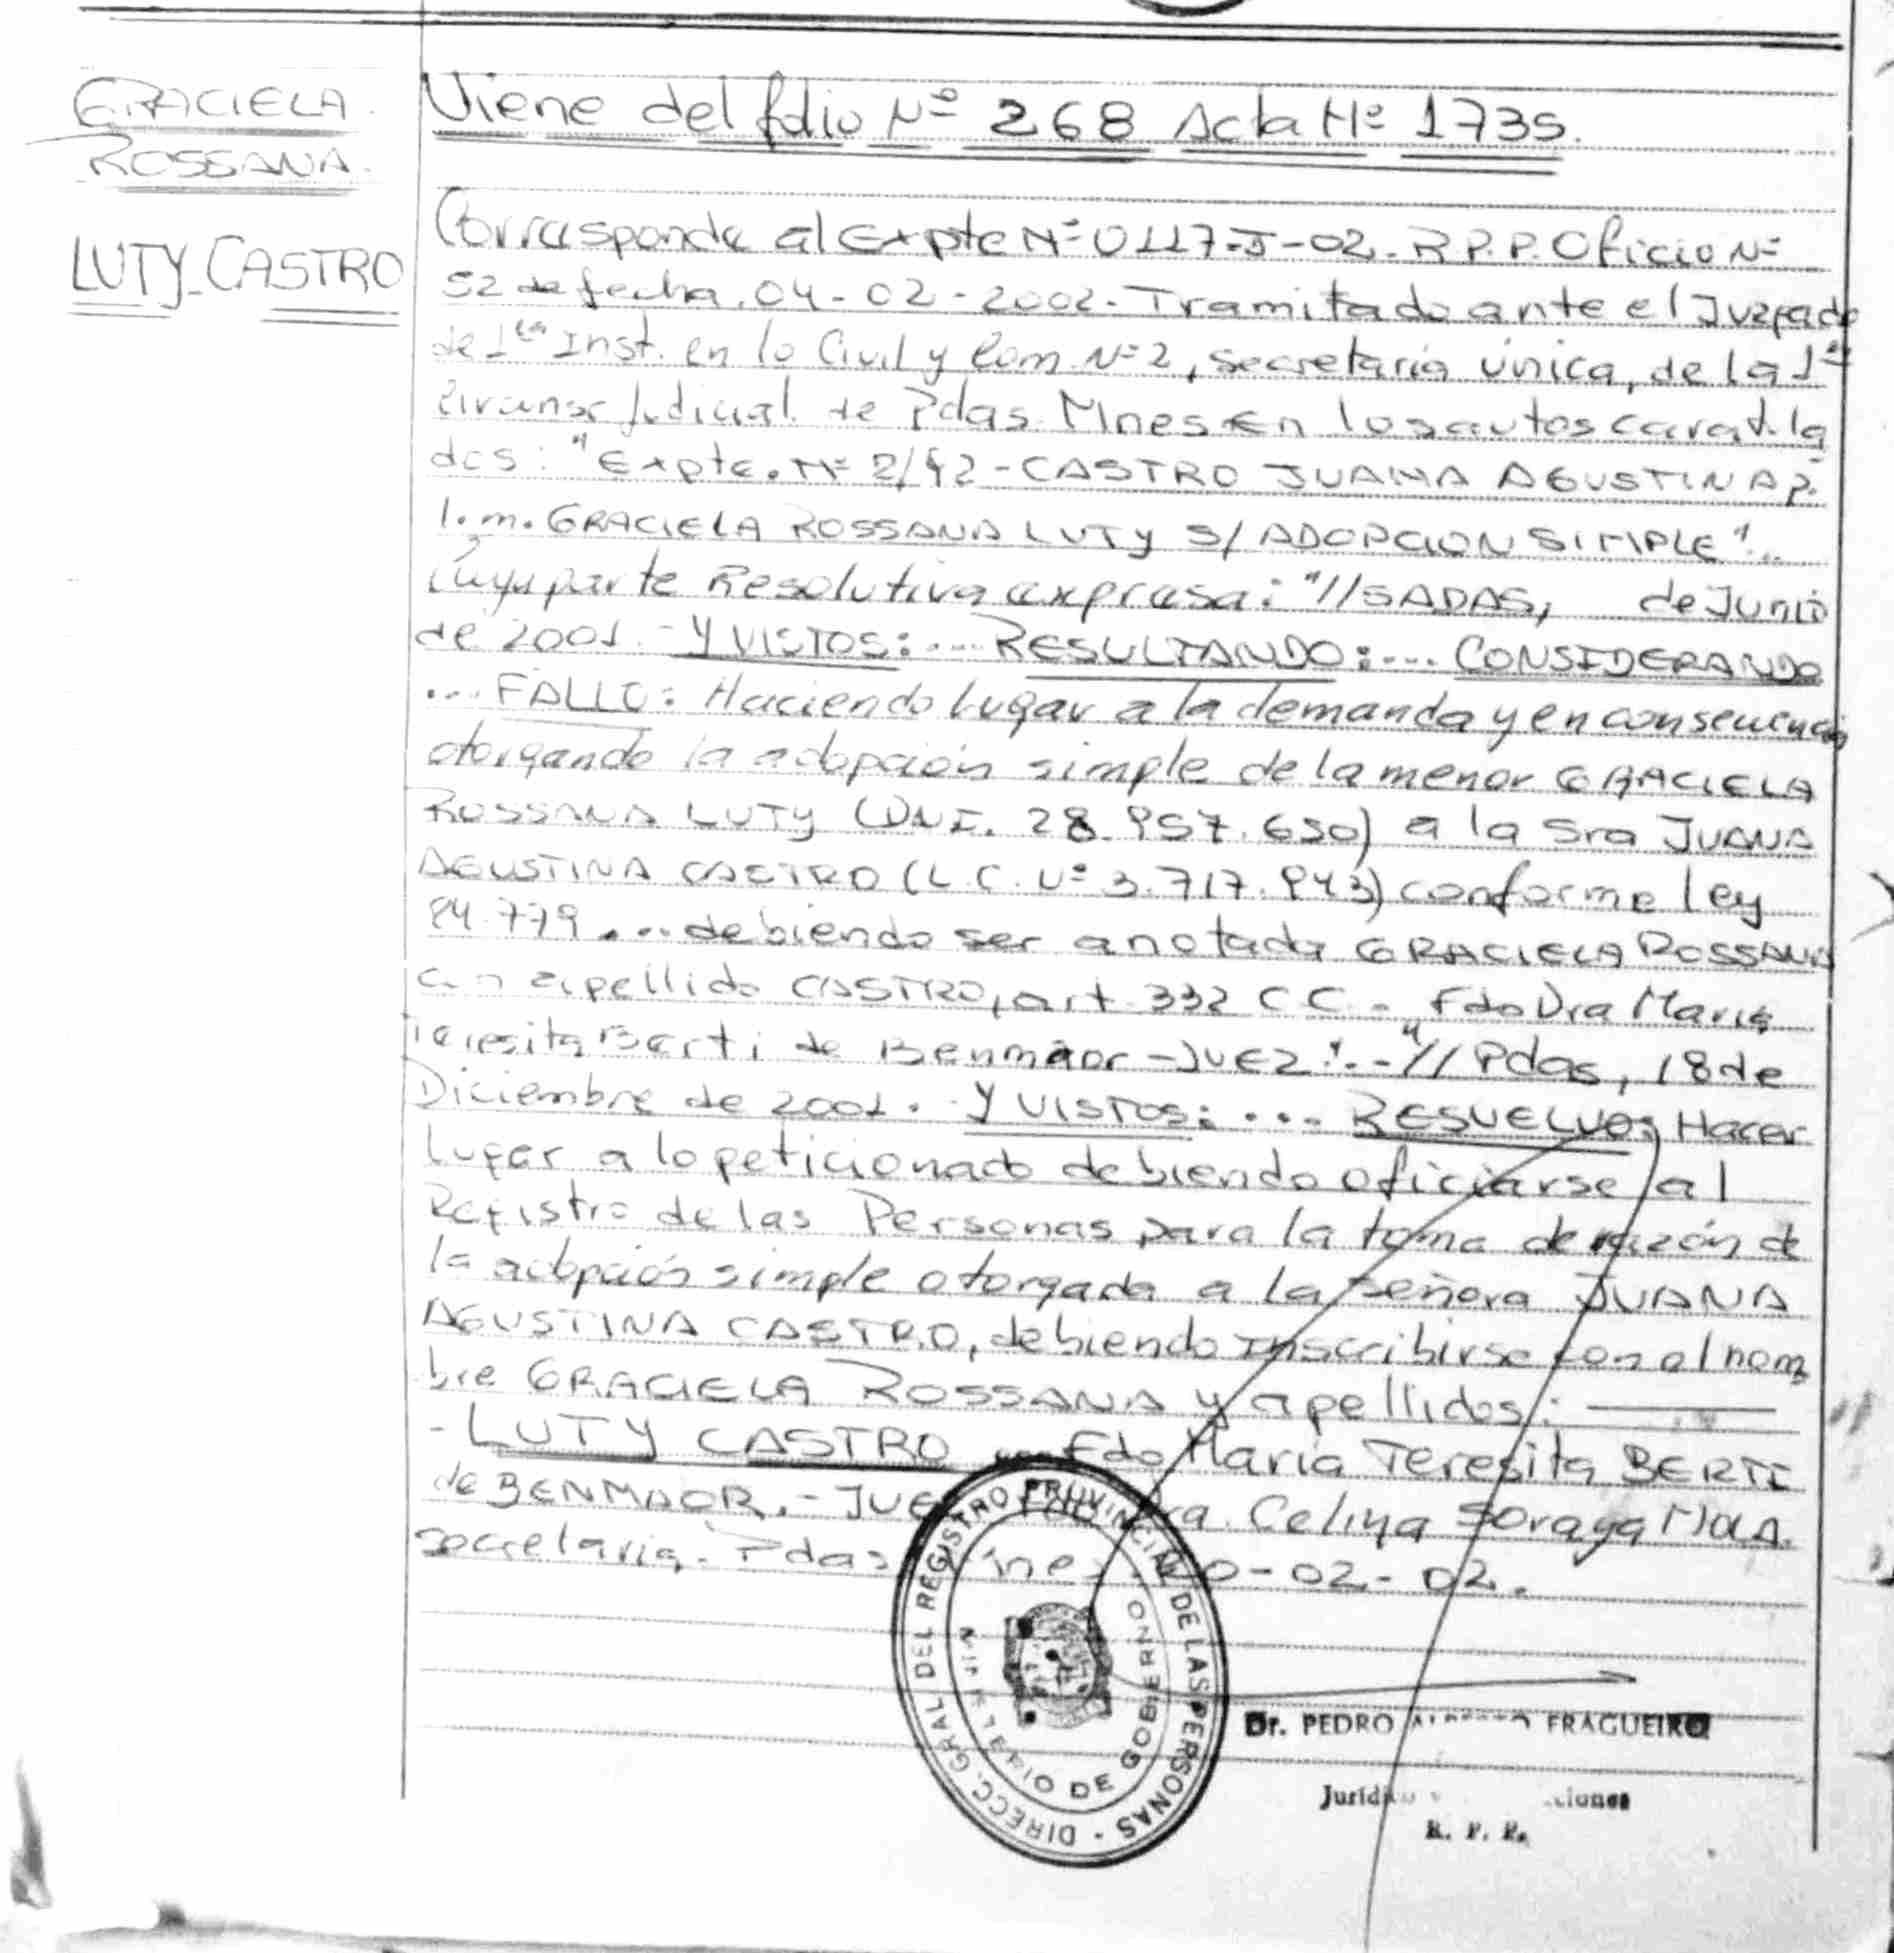 GRACIELA
ROSSANA.
LUTY CASTRO
Viene del folio Nº 268 Acta Nº 1735.
Corresponde al Expte Nº 0117-J-02. R.P.P. Oficio Nº
52 de fecha. 04-02-2002. Tramitado ante el Juzgado
de 1ra Inst. en lo Civil y Com. Nº 2, secretaria única, de la 1ra
Circunsc Judicial de Pdas. Mnes en los autos caratula
dos: "Expte. Nº 2/92 - CASTRO JUANA AGUSTINA p.
l.m. GRACIELA ROSSANA LUTY S/ ADOPCION SIMPLE"..
Cuya parte Resolutiva expresa: "//SADAS, de Junio
de 2001.- Y VISTOS:... RESULTANDO:... CONSIDERANDO
... FALLO: Haciendo lugar a la demanda y en consecuencia
otorgando la adopción simple de la menor GRACIELA
ROSSANA LUTY (DNI. 28.957.650) a la Sra JUANA
AGUSTINA CASTRO (L.C. Nº 3.717.943) conforme ley
24.779.... debiendo ser anotada GRACIELA ROSSANA
con apellido CASTRO, art. 332 C C.- Fdo Dra Maria
Teresita Berti de Benmaor - Juez".- "// Pdas, 18 de
Diciembre de 2001.- Y VISTOS:... RESUELVO: Hacer
lugar a lo peticionado debiendo oficiarse al
Registro de las Personas para la toma de razón de
la adopción simple otorgada a la señora JUANA
AGUSTINA CASTRO, debiendo inscribirse con el nom
bre GRACIELA ROSSANA y apellidos:
- LUTY CASTRO Fdo Maria Teresita BERTI
de BENMAOR.- JUEZ Fdo Dra. Celina Soraya
secretaria.- Pdas 20-02-02.
DIRECC. GRAL DEL REGISTRO PROVINCIAL DE LAS PERSONAS -
DE GOBIERNO
Dr. PEDRO ALBERTO FRAGUEIRO
R. P. P.